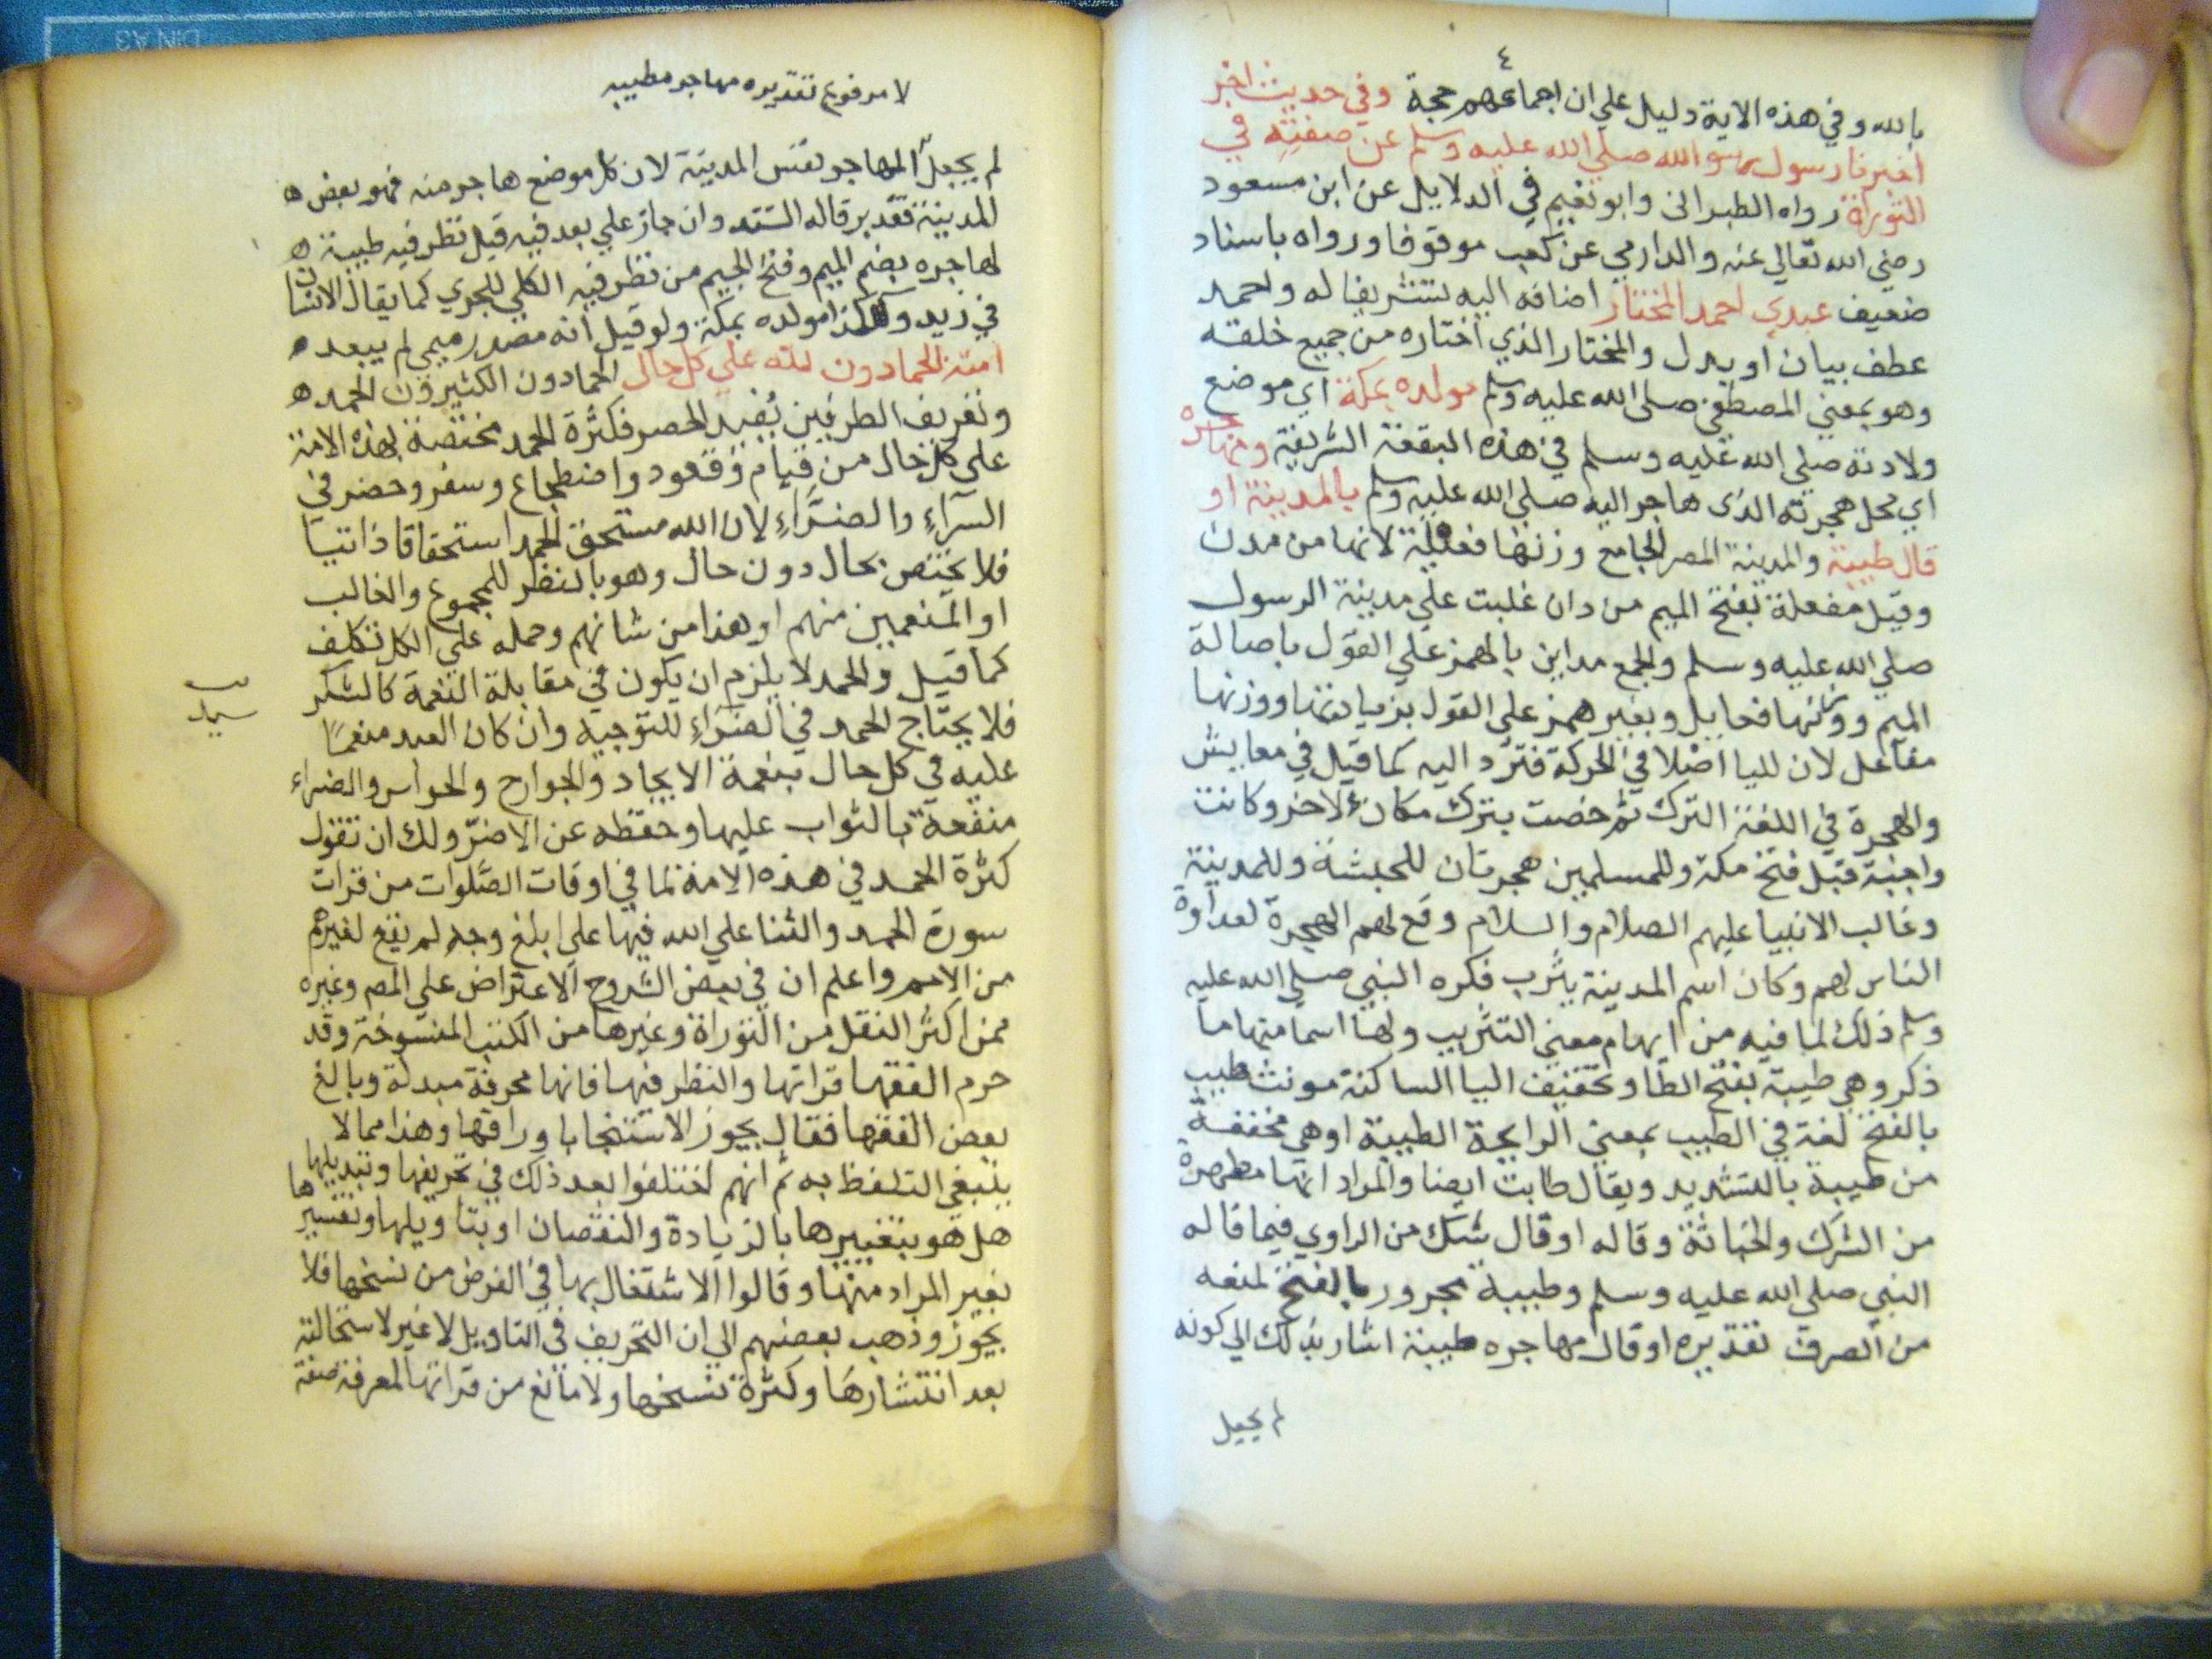 ٤
بالله وفي هذه الاية دليل علي ان اجماعهم حجة وفي حديث اخر
اخبرنا رسول الله صلي الله عليه وسلم عن صفته في
التوراة رواه الطبراني وابو نعيم في الدلايل عن ابن مسعود
رضي الله تعالي عنه والدارمي عن كعب موقوفا ورواه باسناد
ضعيف عبدي احمد المختار اضافه اليه تشريفا له واحمد
عطف بيان او بدل والمختار الذي اختاره من جميع خلقه
وهو بمعني المصطفي صلى الله عليه وسلم مولده بمكة اي موضع
ولادته صلي الله عليه وسلم في هذه البقعة الشريفة ومهاجره
اي محل هجرته الذى هاجر اليه صلي الله عليه وسلم بالمدينة او
قال طيبة والمدينة المصر الجامع وزنها فعيلة لانها من مدن
وقيل مفعلة بفتح الميم من دان غلبت علي مدينة الرسول
صلي الله عليه وسلم والجمع مداين بالهمز علي القول باصالة
الميم ووزنها فعايل وبغير همز على القول بزيادتها ووزنها
مفاعل لان لليا اصلا في الحركة فترد اليه كما قيل في معايش
والهجرة في اللغة الترك ثم خصت بترك مكان لاخر وكانت
واجبة قبل فتح مكة وللمسلمين هجرتان للحبشة وللمدينة
وغالب الانبيا عليهم الصلام والسلام وقع لهم الهجرة لعداوة
الناس لهم وكان اسم المدينة يثرب فكره النبي صلي الله عليه
وسلم ذلك لما فيه من ايهام معني التثريب ولها اسما منها ما
ذكر وهي طيبة بفتح الطا وتخفيف اليا الساكنة مونث طيب
بالفتح لغة في الطيب بمعني الرايحة الطيبة او هي مخففة
من طيبة بالتشديد ويقال طابت ايضا والمراد انها مطهرة
من الشرك والخباثة وقاله او قال شك من الراوي فيما قاله
النبي صلي الله عليه وسلم وطيبة مجرور بالفتح لمنعه
من الصرف تقديره او قال مهاجره طيبة اشار بذلك الي كونه
لم يجعل
لا مرفوع تقديره مهاجر مطيبه
لم يجعل المهاجر نفس المدينة لان كل موضع هاجر منه فهو بعض ه
المدينة فقد برقاله السند وان جاز علي بعد فيه قيل نظر فيه طيبة ه
لهاجره بضم الميم وفتح الجيم من نظرفيه الكلي للجزي كما يقال الانسان
في زيد وكذا مولده بمكة ولو قيل انه مصدر ميمي لم يبعد ه
امته الحمادون لله علي كل حال الحمادون الكثيرون الحمد ه
وتعريف الطرفين يفيد الحصر فكثرة الحمد مختصة بهذه الامة
على كل حال من قيام وقعود واضطجاع وسفر وحضر في
السرآء والضرآء لان الله مستحق الحمد استحقاقا ذاتيا
فلا يختص بحال دون حال وهو بالنظر للمجموع والغالب
او المنعمين منهم او هذا من شانهم وحمله علي الكل تكلف
كما قيل والحمد لا يلزم ان يكون في مقابلة النعمة كالشكر
فلا يحتاج الحمد في الضرآء للتوجيه وان كان العبد منعما
عليه في كل حال بنعمة الايجاد والجوارح والحواس والضراء
منفعة بالثواب عليها وحفظه عن الاضر ولك ان تقول
كثرة الحمد في هذه الامة لما في اوقات الصلوات من قرات
سورة الحمد والثنا علي الله فيها على ابلغ وجه لم يقع لغيرهم
من الامم واعلم ان في بعض الشروح الاعتراض علي المصـ وغيره
ممن اكثر النقل من التوراة وغيرها من الكتب المنسوخة وقد
حرم الفقها قراتها والنظر فيها فانها محرفة مبدلة وبالغ
بعض الفقها فقال يجوز الاستنجا باوراقها وهذا مما لا
ينبغي التلفظ به ثم انهم اختلفوا بعد ذلك في تحريفها وتبديلها
هل هو بتغييرها بالزيادة والنقصان او بتاويلها وتفسيرها
بغير المراد منها وقالوا الاشتغال بها في الفرض من نسخها فلا
يجوز وذهب بعضهم الى ان التحريف في التاويل لا غير لاستحالته
بعد انتشارها وكثرة نسخها ولا مانع من قراتها لمعرفة صفة